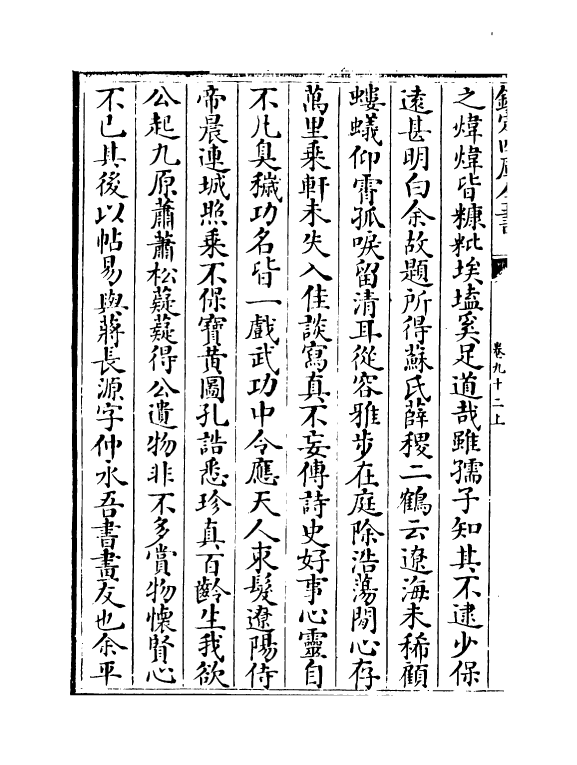 欽定四庫全書
卷九十二上
之煒煒皆糠粃埃壒奚足道哉雖孺子知其不逮少保
遠甚明白余故題所得蘇氏薛稷二鶴云遼海未稀顧
螻蟻仰霄孤唳留清耳從容雅步在庭除浩蕩閒心存
萬里乘軒未失入佳談寫真不妄傳詩史好事心靈自
不凡臭穢功名皆一戲武功中令應天人束髮遼陽侍
帝晨連城照乘不保寶黄圖孔誥悉珍真百齡生我欲
公起九原蕭蕭松薿薿得公遺物非不多賞物懷賢心
不已其後以帖易與蔣長源字仲永吾書畫友也余平